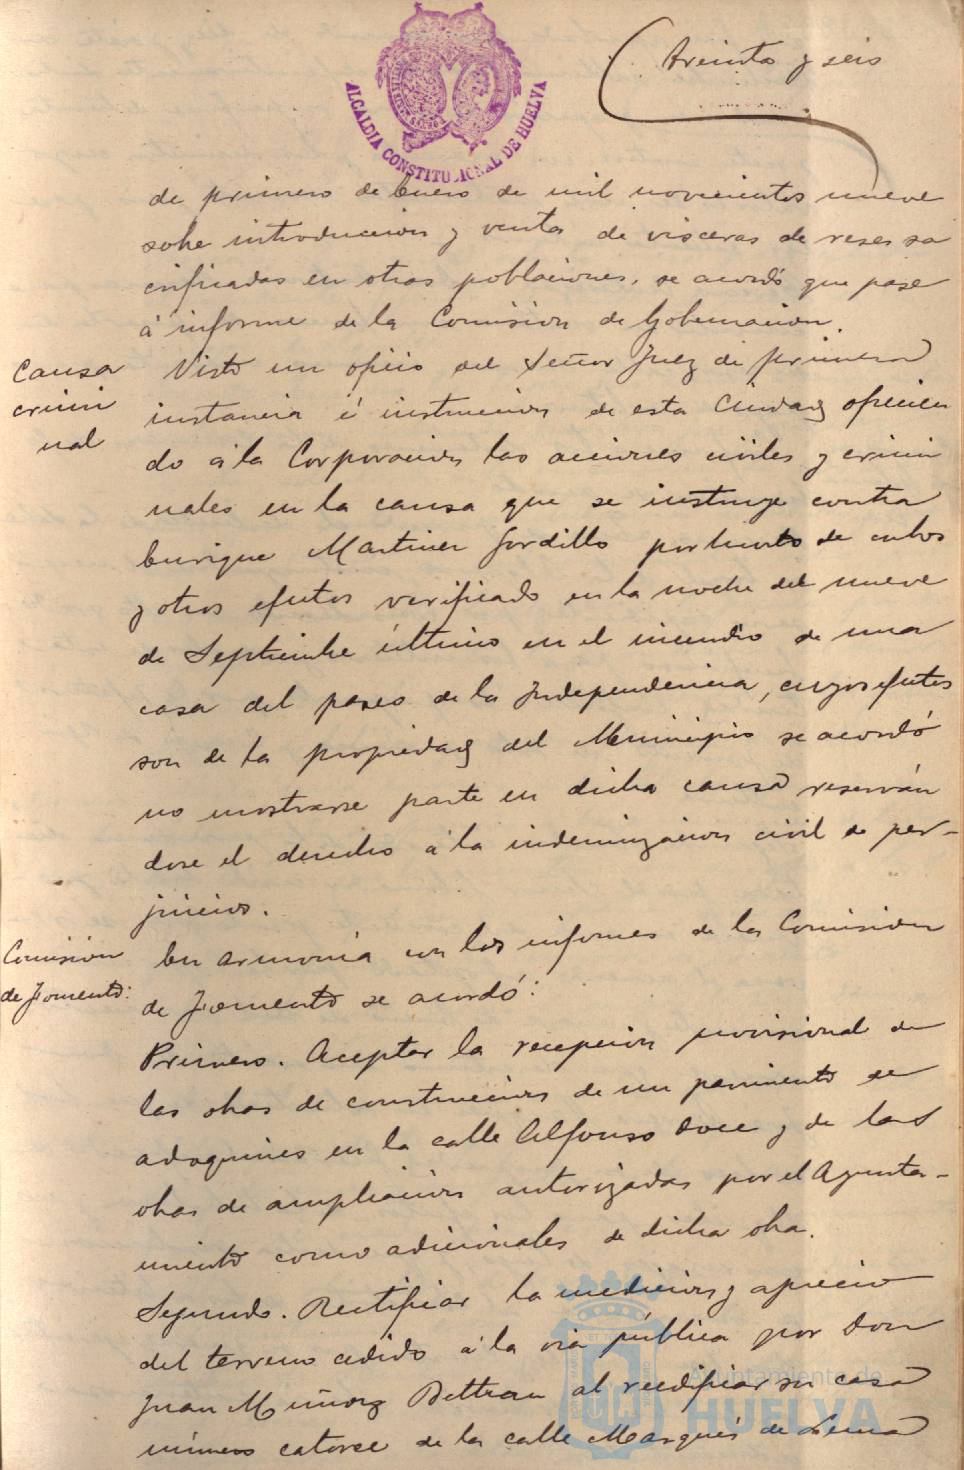 ALCALDIA CONSTITUCIONAL DE HUELVA
Treinta y seis
de primero de Enero de mil novecientos nueve
sobre introduccion y venta de visceras de reses sa
crificadas en otras poblaciones, se acordó que pase
á informe de la Comision de Gobernacion.
Causa
crimi
nal
Visto un oficio del Señor Juez de primera
instancia é instruccion de esta Ciudad ofrecien
do á la Corporacion las acciones civiles y crimi
nales en la causa que se instruye contra
Enrique Martinez Gordillo por hurto de cubos
y otros efectos verificado en la noche del nueve
de Septiembre último en el incendio de una
casa del paseo de la Independencia, cuyos efectos
son de la propiedad del Municipio se acordó
no mostrarse parte en dicha causa reserván
dose el derecho á la indemnizacion civil de per-
juicios.
Comision
de Fomento:
En armonia con los informes de la Comision
de Fomento se acordó:
Primero. Aceptar la recepcion provisional de
las obras de construccion de un pavimento de
adoquines en la calle Alfonso doce y de las
obras de ampliacion autorizadas por el Ayunta-
miento como adicionales de dicha obra.
Segundo. Rectificar la medicion y aprecio
del terreno cedido á la via pública por Don
Juan Muñoz Beltran al reedificar su casa
número catorce de la calle Marqués de
Ayuntamiento de
HUELVA